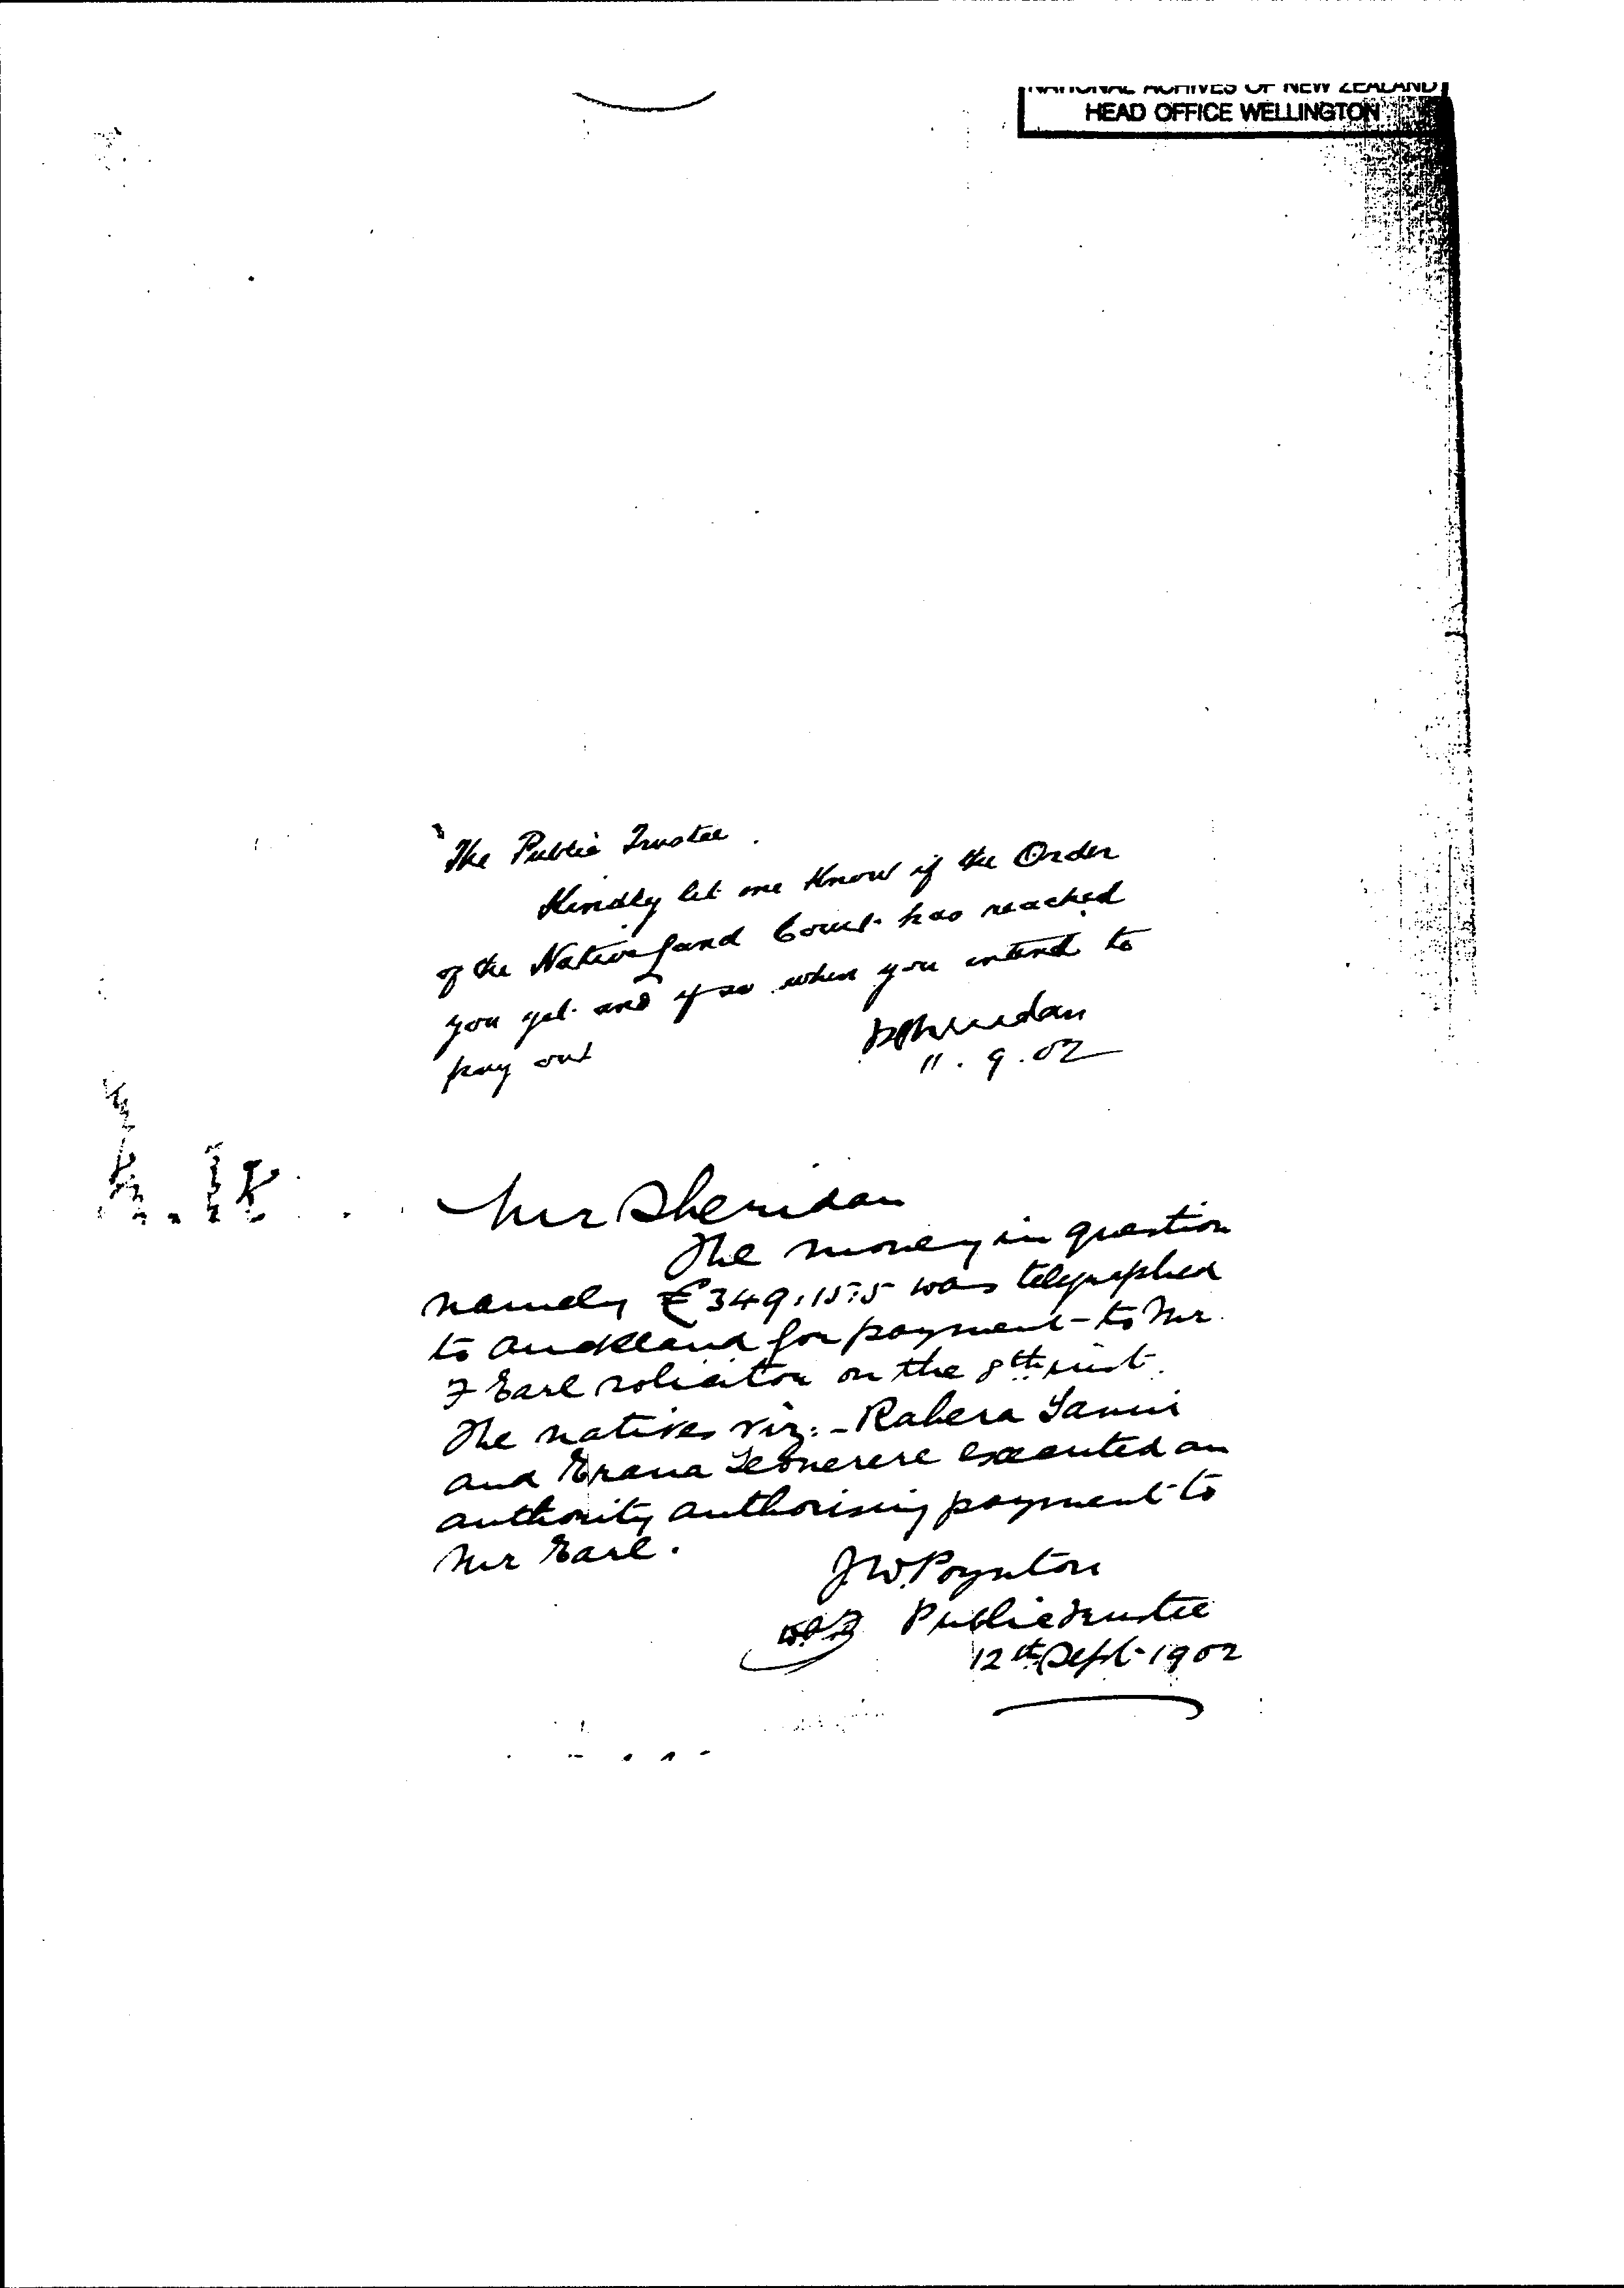 NATIONAL ACHIVES OF NEW ZEALAND
HEAD OFFICE WELLINGTON
The Public Trustee.
Kindly let me know if the Order
of the Native Land Court has reached
you yet and if so when you intend to
pay out
P Sheridan
11.9.02
Mr Sheridan
The money in question
namely £349:15:5 was telegraphed
to Auckland for payment to Mr
F Earl solicitor on the 8th inst.
The natives viz:- Rahera
and Erana executed an
authority authorising payment to
Mr Earl.
J.W. Poynton
Public Trustee
12th Sept 1902